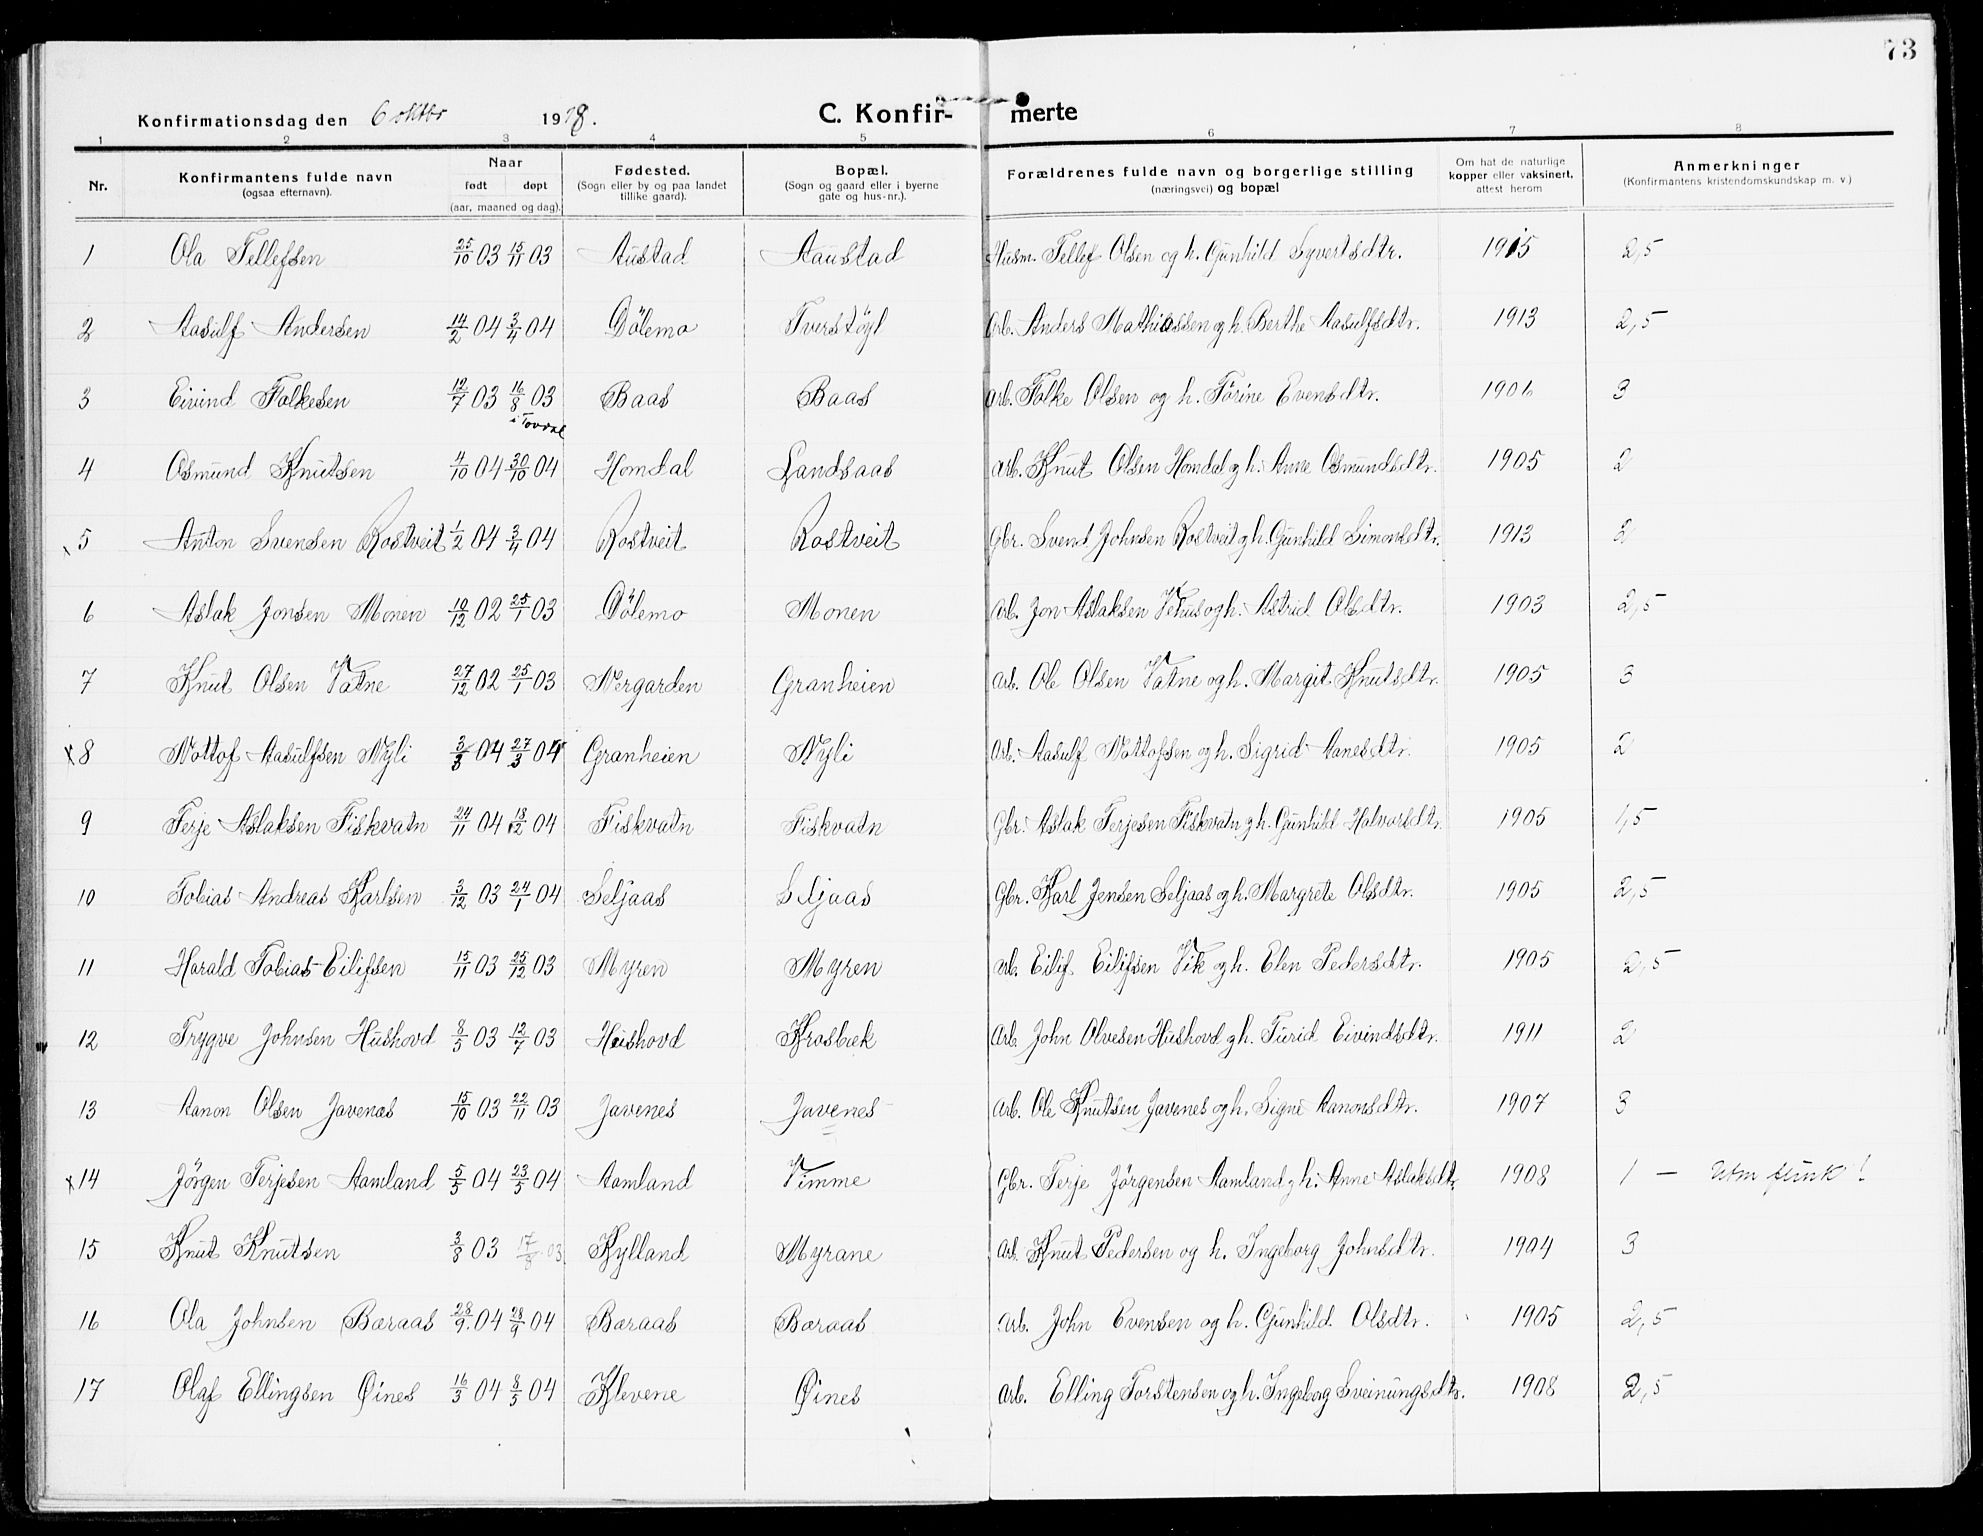 73
Konfirmationsdag den 6 oktbr 1918. C. Konfir- merte
1 2 3 4 5 6 7 8
Nr. Konfirmantens fulde navn (ogsaa efternavn). Naar født døpt (aar, maaned og dag). Fødested. (Sogn eller by og paa landet tillike gaard). Bopæl. (Sogn og gaard eller i byerne gate og hus-nr.). Forældrenes fulde navn og borgerlige stilling (næringsvei) og bopæl Om hat de naturlige kopper eller vaksinert, attest herom Anmerkninger (Konfirmantens kristendomskundskap m. v.)
1 Ola Tellefsen 25/10 03 15/11 03 Austad Aaustad Husm. Tellef Olsen og h. Gunhild Syvertsdtr. 1915 2,5
2 Aasulf Andersen 14/2 04 3/4 04 Dölemo Tverstöyl Arb. Anders Mathiassen og h. Berthe Aasulfsdtr. 1913 2,5
3 Eivind Folkesen 12/7 03 16/8 03 i Tovdal Baas Baas Arb. Folke Olsen og h. Törine Evensdtr. 1906 3
4 Osmund Knutsen 4/10 04 30/10 04 Homdal Landsaas Arb. Knut Olsen Homdal og h. Anne Osmundsdtr. 1905 2
x 5 Anton Svensen Rostveit 1/2 04 3/4 04 Rostveit Rostveit Gbr. Svend Johnsen Rostveit og h. Gunhild Simonsdtr. 1913 2
6 Aslak Jonsen Monen 10/12 02 25/1 03 Dölemo Monen Arb. Jon Aslaksen Vehus og h. Astrid Olsdtr. 1903 2,5
7 Knut Olsen Vatne 27/12 02 25/1 03 Nergarden Granheien Arb. Ole Olsen Vatne og h. Margit Knutsdtr. 1905 3
x 8 Nottof Aasulfsen Nyli 3/3 04 27/3 04 Granheien Nyli Arb. Aasulf Nottofsen og h. Sigrid Aanesdtr. 1905 2
9 Terje Aslaksen Fiskvatn 24/11 04 18/12 04 Fiskvatn Fiskvatn Gbr. Aslak Terjesen Fiskvatn og h. Gunhild Halvorsdtr. 1905 1,5
10 Tobias Andreas Karlsen 3/12 03 24/1 04 Seljaas Seljaas Gbr. Karl Jensen Seljaas og h. Margrete Olsdtr. 1905 2,5
11 Harald Tobias Eilifsen 15/11 03 25/12 03 Myren Myren Arb. Eilif Eilifsen Vik og h. Elen Pedersdtr. 1905 2,5
12 Trygve Johnsen Hushovd 8/5 03 12/7 03 Hushovd Krosbæk Arb. John Olvesen Hushovd og h. Turid Eivindsdtr. 1911 2
13 Aanon Olsen Javenes 15/10 03 22/11 03 Javenes Javenes Arb. Ole Knutsen Javenes og h. Signe Aanonsdtr. 1907 3
x 14 Jörgen Terjesen Aamland 5/5 04 23/5 04 Aamland Vimme Gbr. Terje Jörgensen Aamland og h. Anne Aslaksdtr. 1908 1 —
15 Knut Knutsen 3/8 03 17/8 03 Kylland Myrane Arb. Knut Pedersen og h. Ingeborg Johnsdtr. 1904 3
16 Ola Johnsen Baraas 28/9 04 28/9 04 Baraas Baraas Arb. John Evensen og h. Gunhild Olsdtr. 1905 2,5
17 Olaf Ellingsen Øines 16/3 04 8/5 04 Klevene Øines Arb. Elling Torstensen og h. Ingeborg Sveinungsdtr. 1908 2,5